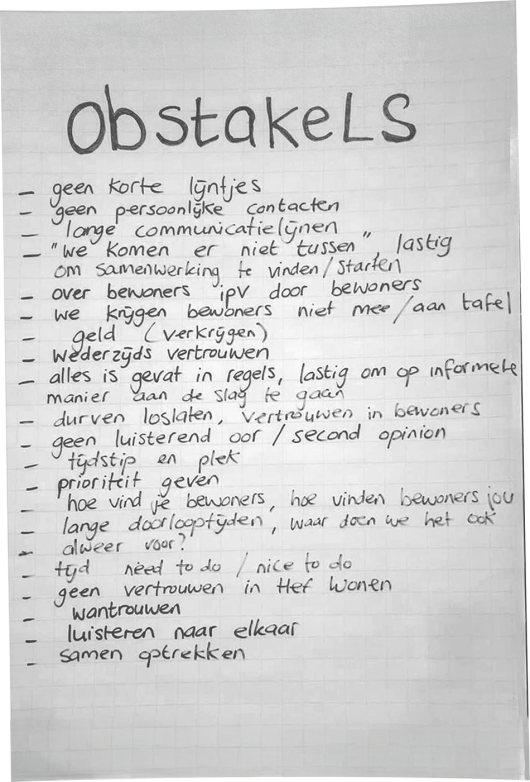 ObstakeLS
- geen korte lijntjes
- geen persoonlijke contacten
- lange communicatielijnen
- "we komen er niet tussen", lastig
om samenwerking te vinden/starten
- over bewoners ipv door bewoners
- we krijgen bewoners niet mee/aan tafel
- geld (verkrijgen)
- wederzijds vertrouwen
- alles is gevat in regels, lastig om op informele
manier aan de slag te gaan
- durven loslaten, vertrouwen in bewoners
- geen luisterend oor / second opinion
- tijdstip en plek
- prioriteit geven
- hoe vind je bewoners, hoe vinden bewoners jou
- lange doorlooptijden, waar doen we het ook
- alweer voor?
- tijd need to do / nice to do
- geen vertrouwen in Hef Wonen
- wantrouwen
- luisteren naar elkaar
- samen optrekken